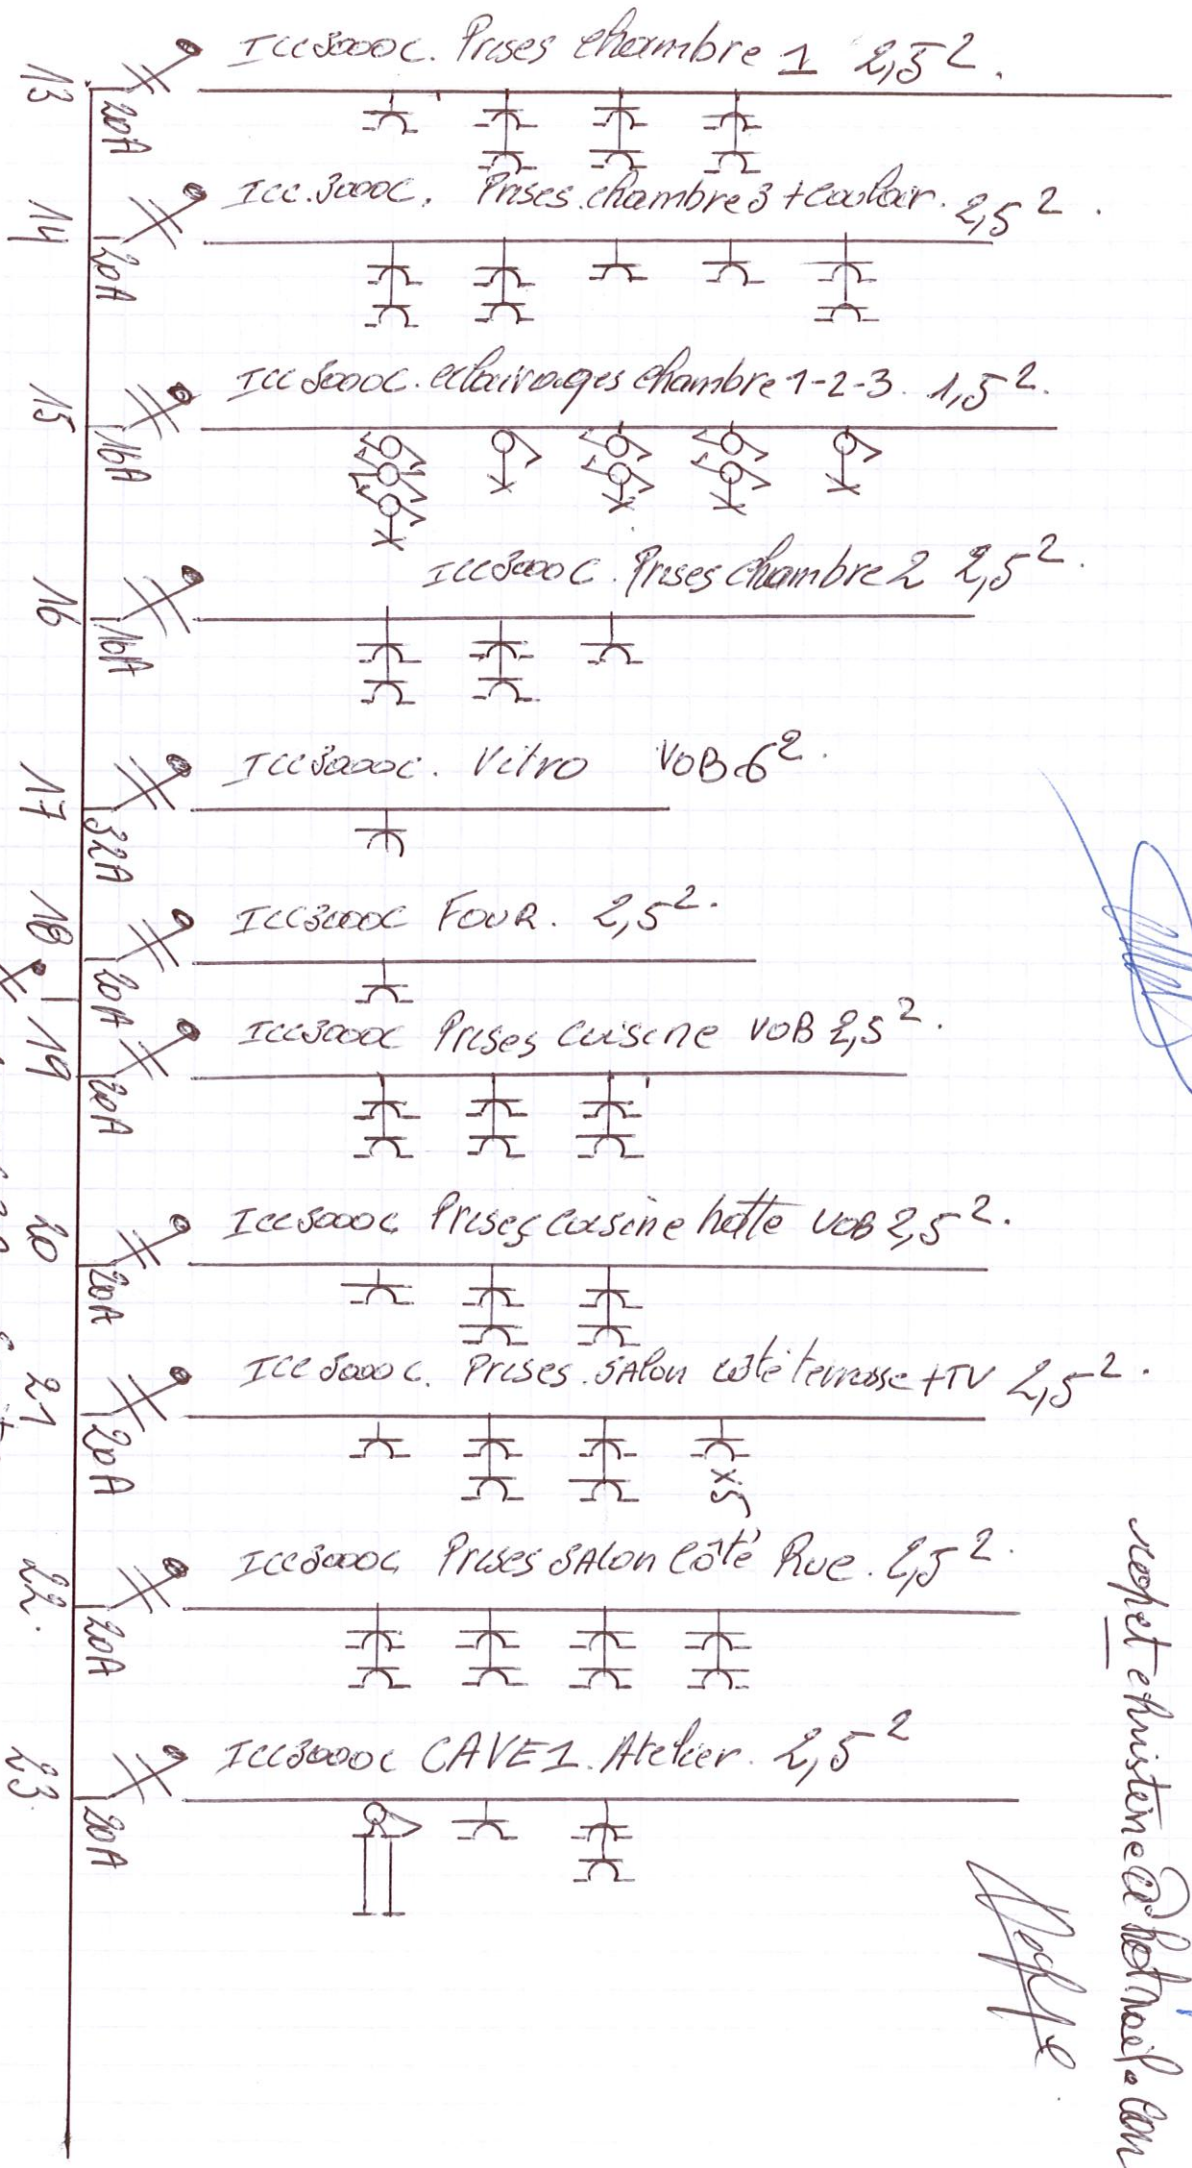 13 20A Icc3000C. Prises chambre 1 2,5².
14 20A Icc.3000C. Prises.chambre 3 + couloir. 2,5².
15 16A Icc3000C. eclairages chambre 1-2-3. 1,5².
16 16A Icc3000C. Prises chambre 2 2,5².
17 32A Icc3000C. Vitro VOB 6².
18 20A Icc3000C FOUR. 2,5².
19 20A Icc3000C Prises cuisine VOB 2,5².
20 20A Icc3000C Prises cuisine hotte VOB 2,5².
21 20A Icc3000C. Prises.SAlon côté terrasse + TV 2,5².
x5
22. 20A Icc3000C Prises SAlon Côté Rue. 2,5².
23. 20A Icc3000C CAVE1. Atelier. 2,5²